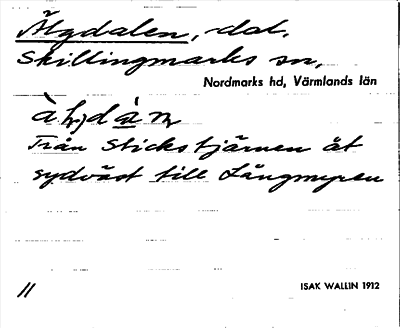 Älgdalen, dal.
Skillingmarks sn,
Nordmarks hd, Värmlands län
Från Stickstjärnen åt
sydväst till Långmyren
11
ISAK WALLIN 1912